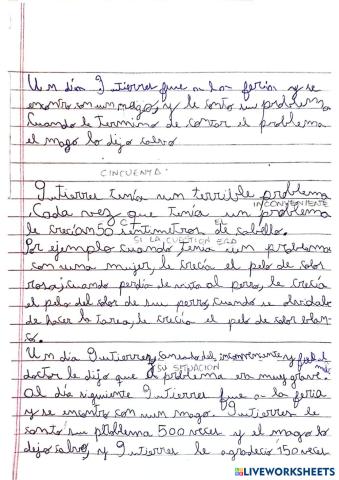 Un día Gutierres fue a la feria y se
encontro con un mago, y le conto su problema
Cuando le termino de contar el problema
el mago lo dijo calvo
CINCUENTA:
Gutierres tenía un terrible problema
INCONVENIENTE
Cada vez que tenía un problema
le crecían 50 centímetros de cabello.
SI LA CUESTION ERA
Por ejemplo cuando tenia un problema
con una mujer, le crecía el pelo de color
rosa, cuando perdía de vista al perro, le crecía
el pelo del color de su perro, cuando se olvidaba
de hacer la tarea, le crecía el pelo de color blan-
co.
Un día Gutierrez, cansado del inconveniente y fue al
doctor le dijo que su problema era muy grave.
SU SITUACION
Al día siguiente Gutierres fue a la feria
y se encontro con un mago. Gutierres le
contó su problema 500 veces y el mago lo
dijo calvo, y Gutierres le agradeció 150 veces
LIVEWORKSHEETS